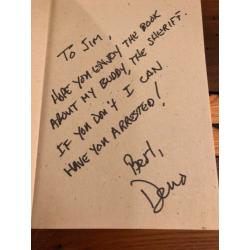 To Jim,
Hope you enjoy the book
about my buddy, the sheriff.
If you don't I can
have you arrested!
Best,